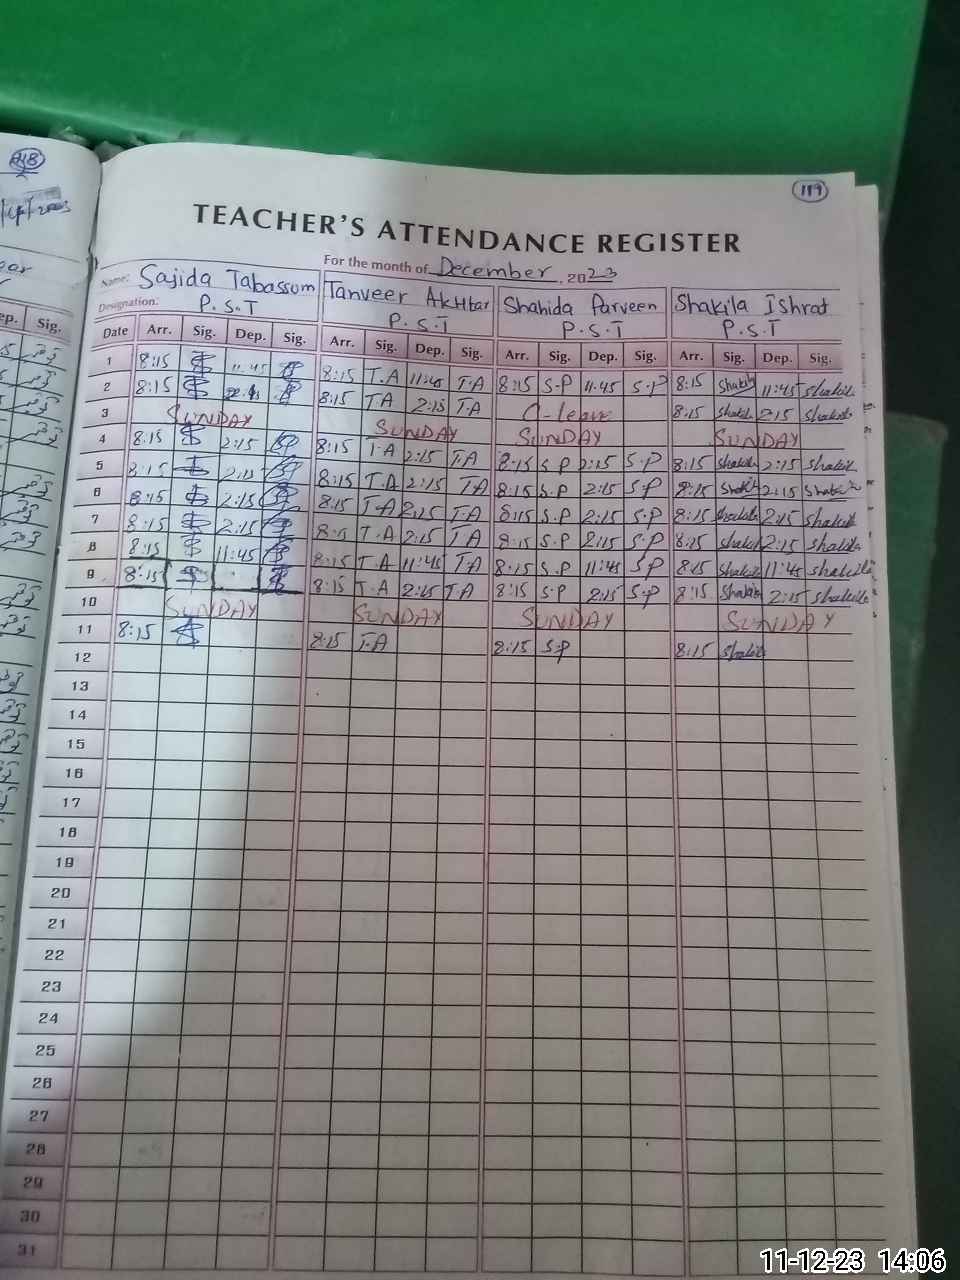 118
119
TEACHER'S ATTENDANCE REGISTER
For the month of December, 2023
Name: Sajida Tabassum Tanveer Akhtar Shahida Parveen Shakila Ishrat
Designation: P.S.T P.S.T P.S.T P.S.T
ep. Sig. Date Arr. Sig. Dep. Sig. Arr. Sig. Dep. Sig. Arr. Sig. Dep. Sig. Arr. Sig. Dep. Sig.
1 8:15 11:45 8:15 T.A 11:45 T.A 8:15 S.P 11:45 S.P 8:15 Shakila 11:45 Shakila
2 8:15 8:15 T.A 2:15 T.A C-leave 8:15 Shakila 2:15 Shakila
3 SUNDAY SUNDAY SUNDAY SUNDAY
4 8:15 2:15 8:15 T.A 2:15 T.A 8:15 S.P 2:15 S.P 8:15 Shakila 2:15 Shakila
5 8:15 2:15 8:15 T.A 2:15 T.A 8:15 S.P 2:15 S.P 8:15 Shakila 2:15 Shakila
6 8:15 2:15 8:15 T.A 2:15 T.A 8:15 S.P 2:15 S.P 8:15 Shakila 2:15 Shakila
7 8:15 2:15 8:15 T.A 2:15 T.A 8:15 S.P 2:15 S.P 8:15 Shakila 2:15 Shakila
8 8:15 11:45 8:15 T.A 11:45 T.A 8:15 S.P 11:45 S.P 8:15 Shakila 11:45 Shakila
9 8:15 8:15 T.A 2:15 T.A 8:15 S.P 2:15 S.P 8:15 Shakila 2:15 Shakila
10 SUNDAY SUNDAY SUNDAY SUNDAY
11 8:15 8:15 T.A 8:15 S.P 8:15 Shakila
12
13
14
15
16
17
18
19
20
21
22
23
24
25
26
27
28
29
30
31
11-12-23 14:06